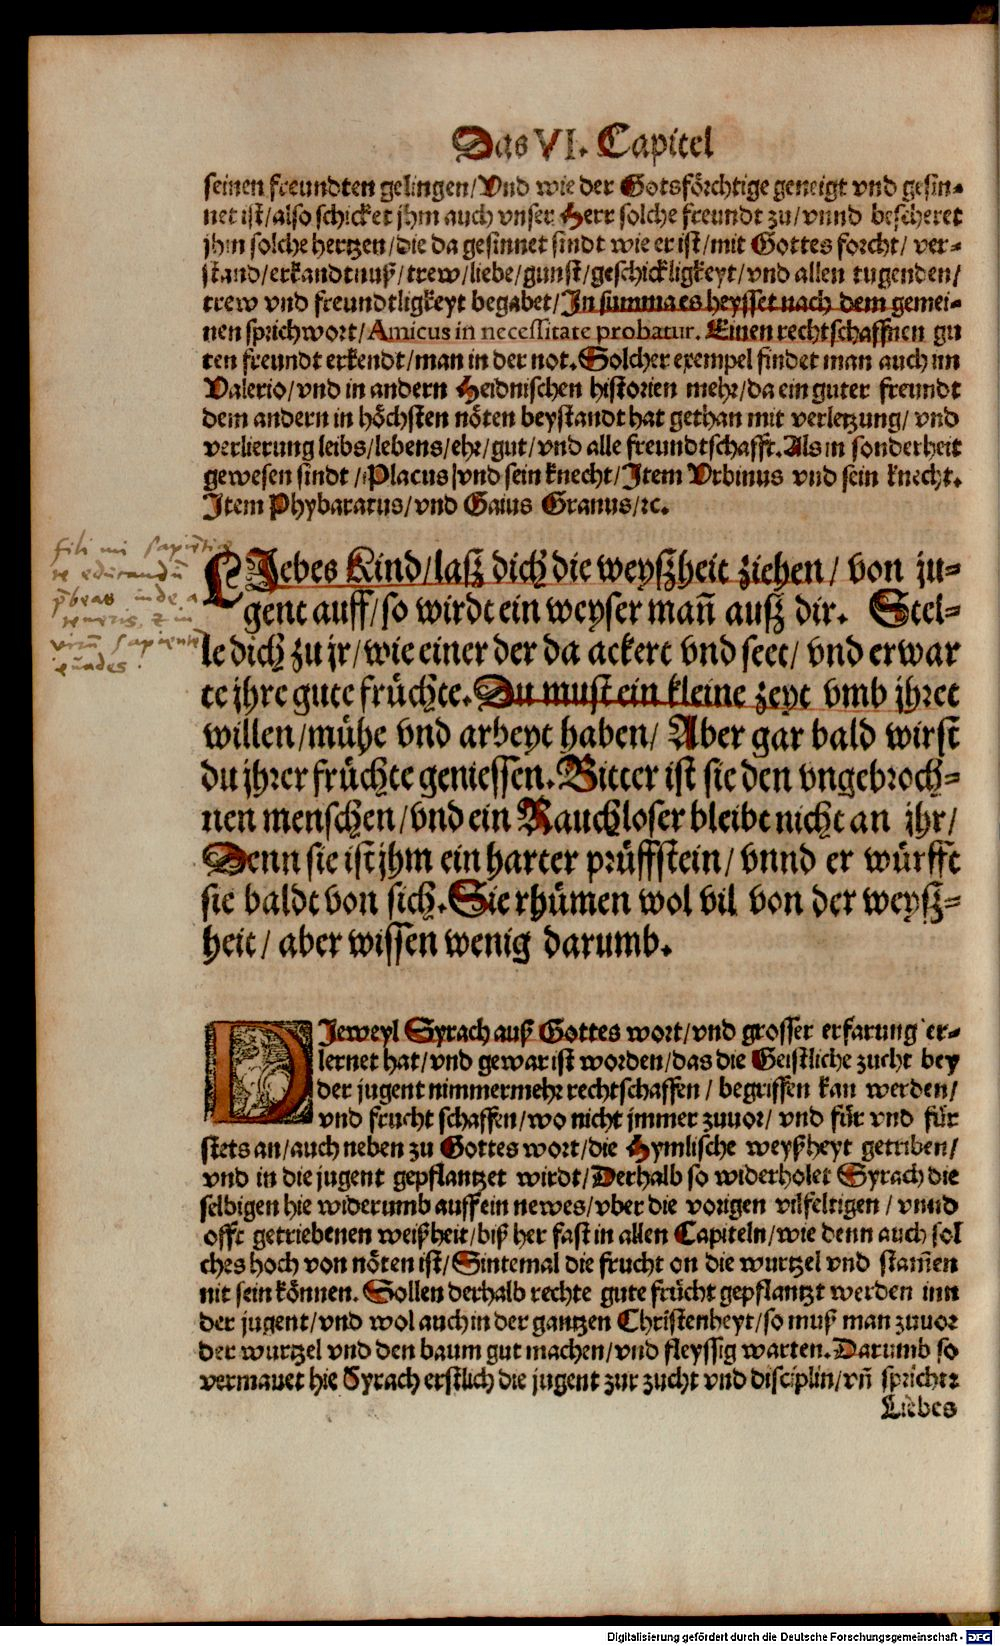 Das VI. Capitel
seinen freundten gelingen/ Vnd wie der Gotsförchtige geneigt vnd gesin-
net ist/ also schicket jhm auch vnser Herr solche freundt zu/ vnnd bescheret
jhm solche hertzen/ die da gesinnet sindt wie er ist/ mit Gottes forcht/ ver-
stand/ erkandtnuß/ trew/ liebe/ gunst/ geschickligkeyt/ vnd allen tugenden/
trew vnd freundtligkeyt begabet/ In summa es heysset nach dem gemei-
nen sprichwort/ Amicus in necessitate probatur. Einen rechtschaffnen gu
ten freundt erkendt/ man in der not. Solcher exempel findet man auch im
Valerio/ vnd in andern Heidnischen historien mehr/ da ein guter freundt
dem andern in höchsten nöten beystandt hat gethan mit verletzung/ vnd
verlierung leibs/ lebens/ ehr/ gut/ vnd alle freundtschafft. Als in sonderheit
gewesen sindt/ Placus vnd sein knecht/ Item Vrbinus vnd sein knecht.
Item Phybaratus/ vnd Gaius Granus/ ꝛc.
fili mi sapientiæ
te educandū
p̄beas inde a
teneris, & in
virū sapientē
euades.
LIebes Kind/ laß dich die weyßheit ziehen/ von ju-
gent auff/ so wirdt ein weyser mañ auß dir. Stel-
le dich zu jr/ wie einer der da ackert vnd seet/ vnd erwar
te jhre gute früchte. Du must ein kleine zeyt vmb jhret
willen/ mühe vnd arbeyt haben/ Aber gar bald wirst
du jhrer früchte geniessen. Bitter ist sie den vngebroch-
nen menschen/ vnd ein Rauchloser bleibt nicht an jhr/
Denn sie ist jhm ein harter prüffstein/ vnnd er würfft
sie baldt von sich. Sie rhümen wol vil von der weyß-
heit/ aber wissen wenig darumb.
DIeweyl Syrach auß Gottes wort/ vnd grosser erfarung er-
lernet hat/ vnd gewar ist worden/ das die Geistliche zucht bey
der jugent nimmermehr rechtschaffen/ begriffen kan werden/
vnd frucht schaffen/ wo nicht jmmer zuuor/ vnd für vnd für
stets an/ auch neben zu Gottes wort/ die Hymlische weyßheyt getriben/
vnd in die jugent gepflantzet wirdt/ Derhalb so widerholet Syrach die
selbigen hie widerumb auff ein newes/ vber die vorigen vilfeltigen/ vnnd
offt getriebenen weißheit/ biß her fast in allen Capiteln/ wie denn auch sol
ches hoch von nöten ist/ Sintemal die frucht on die wurtzel vnd stam̃en
nit sein können. Sollen derhalb rechte gute frücht gepflantzt werden inn
der jugent/ vnd wol auch in der gantzen Christenheyt/ so muß man zuuor
der wurtzel vnd den baum gut machen/ vnd fleyssig warten. Darumb so
vermanet hie Syrach erstlich die jugent zur zucht vnd disciplin/ vñ spricht:
Liebes
Digitalisierung gefördert durch die Deutsche Forschungsgemeinschaft - DFG